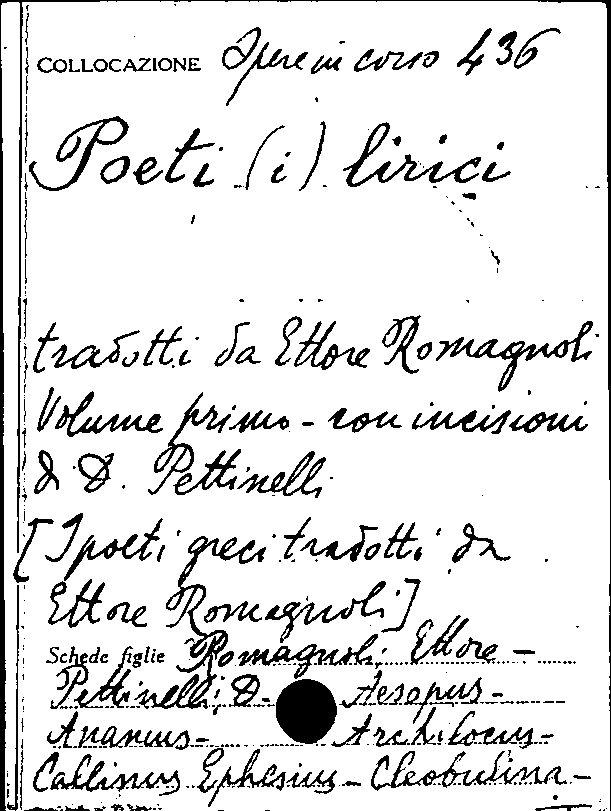 COLLOCAZIONE Opere in corso 436
Poeti (i) lirici
tradotti da Ettore Romagnoli
Volume primo - con incisioni
di D. Pettinelli
[I poeti greci tradotti da
Ettore Romagnoli]
Schede figlie Romagnoli, Ettore -
Pettinelli, D. - Aesopus -
Ananius - Archilocus -
Callinus Ephesius - Cleobulina -